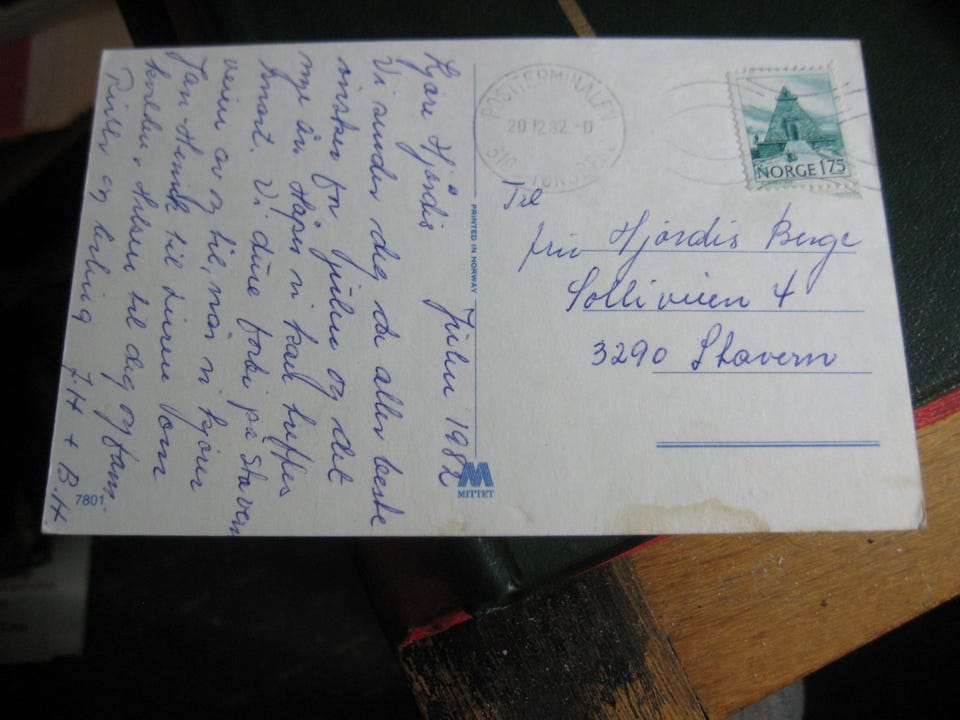 Kjære Hjørdis Julen 1982
Vi ønsker deg de aller beste
ønsker for julen og det
nye år. Håper vi kan treffes
snart. Vi dure forbi på Stavern
veien av og til, når vi kjører
Jan Henrik til
Hilsen til deg og fam.
J.H + B.H
7801
PRINTED IN NORWAY
MITTET
POSTTERMINALEN
20.12.82.-8
310 TØNSBERG
NORGE 175
Til
fru Hjørdis Berge
Solliveien 4
3290 Stavern